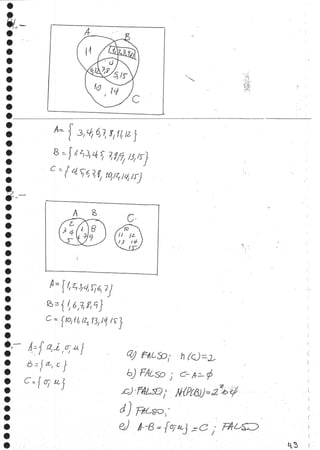 A B
11
5,15
10, 14
C
A={ 3,4,6,7,8,11,12}
B={1,2,3,4,5, 7,8,9, 13,15}
C={4,5,6,7,8, 10,12,14,15}
A B C
2
3 4
5
1
6 7
8
9
10
11 12
13 14
15
A={1,2,3,4,5,6,7}
B={1,6,7,8,9}
C={10,11,12,13,14,15}
A={a,i,o,u}
B={a,i}
C={o,u}
a) FALSO; n(C)=2
b) FALSO; C-A=∅
c) FALSO;
d) FALSO;
e) A-B={o,u}=C; FALSO
43